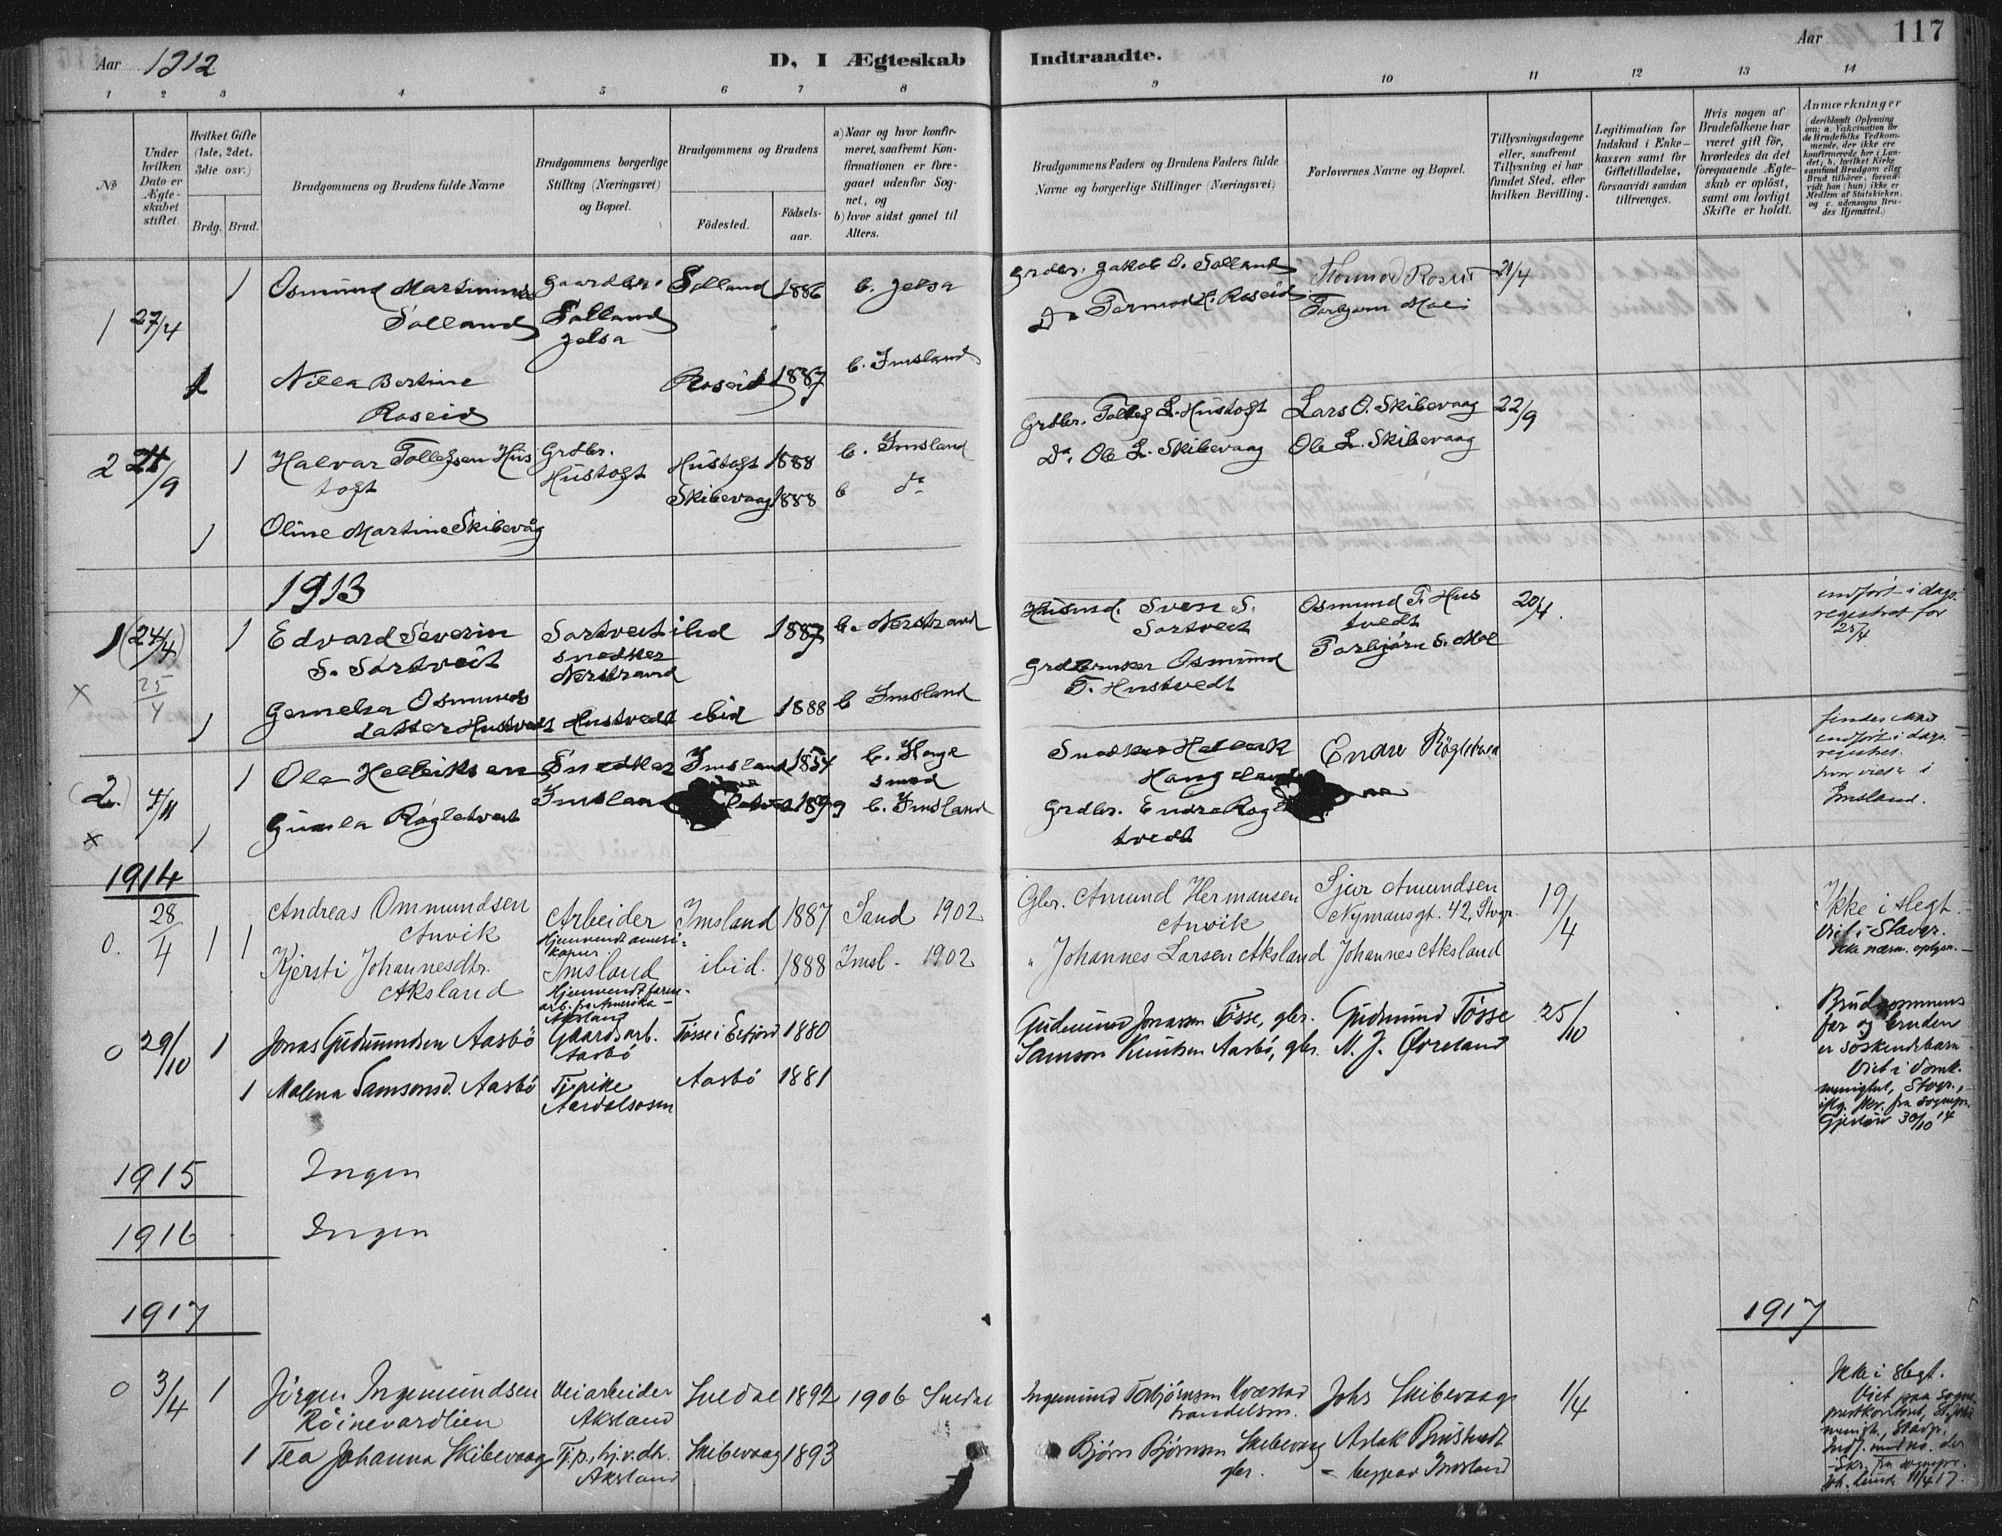 Aar 1912
D, I Ægteskab Indtraadte.
Aar 117
1 2 3 4 5 6 7 8 9 10 11 12 13 14
No
Under hvilken Dato er Ægteskabet stiftet.
Hvilket Gifte (1ste, 2det, 3die osv.)
Brdg. Brud.
Brudgommens og Brudens fulde Navne
Brudgommens borgerlige Stilling (Næringsvei) og Bopæl.
Brudgommens og Brudens
Fødested.
Fødselsaar.
a) Naar og hvor konfirmeret, saafremt Konfirmationen er foregaaet udenfor Sognet, og
b) hvor sidst gaaet til Alters.
Brudgommens Faders og Brudens Faders fulde Navne og borgerlige Stillinger (Næringsvei)
Forlovernes Navne og Bopæl.
Tillysningsdagene eller, saafremt Tillysning ei har fundet Sted, efter hvilken Bevilling.
Legitimation for Indskud i Enkekassen samt for Giftetilladelse, forsaavidt saadan tiltrænges.
Hvis nogen af Brudefolkene har været gift før, hvorledes da det foregaaende Ægteskab er opløst, samt om lovligt Skifte er holdt.
Anmærkninger
(deriblandt Oplysning om: a. Vakcination for de Brudefolks Vedkommende, der ikke ere konfirmerede her i Landet; b. hvilket Kirkesamfund Brudgom eller Brud tilhører, forsaavidt han (hun) ikke er Medlem af Statskirken, og c. udensogns Brudes Hjemsted.)
1 27/4 1 Osmund Martinius Salland Gaardbr. Salland Jelsa Salland 1886 b. Jelsa Grdbr. Jakob O. Salland Tormod Roseid 21/4
1 Nilla Bertine Roseid Roseid 1887 b. Imsland Do Tormod H. Roseid Torbjørn Moe
2 24/9 1 Halvar Tollegsen Hustogt Grdbr. Hustogt Hustogt 1888 b. Imsland Grdbr. Tolleg L. Hustogt Lars O. Skibevaag 22/9
1 Oline Martine Skibevåg Skibevaag 1888 b do Do. Ole L. Skibevaag Ole L. Skibevaag
1913
1 (24/4) 25/4 1 Edvard Severin S. Sørtveit Sørtveit snedker Nerstrand ibid 1887 b. Nerstrand Husmd. Sven S. Sørtveit Osmund T. Hustvedt 20/4. indført i dagregistret for 25/4
x 1 Osmundsdatter Hustvedt Hustvedt ibid 1888 b Imsland Grdbruker Osmund T. Hustvedt Torbjørn S. Moe
(2.) 4/11 1 Ole Helleiksen Snedker Imsland Imsland b. Haugesund Snedker Helleik Haugeland Endre Røgletvedt findes ikke indført i dagregistret. hvor viet i Imsland.
x 1 Gunla Røgletvedt b. Imsland Grdbr. Endre Røgletvedt
1914
0. 28/4 1 1 Andreas Ommundsen Anvik Arbeider Hjemvendt amerikaner Imsland 1887 Sand 1902 Gbr. Amund Hermansen Anvik Sjur Amundsen Nymansgt. 42, Stvgr. 19/4 Ikke i slegt. Viet i Stavgr. Ikke nærm. oplysn.
Kjersti Johannesdtr. Aksland Imsland Hjemvendt farmarb. fra Amerika – Aksland ibid. 1888 Imsl. 1902 " Johannes Larsen Aksland Johannes Aksland
0 29/10 1 Jonas Gudmundsen Aasbö Gaardsarb. Aasbö Tösse i 1880 Gudmund Jonassen Tösse, gbr. Gudmund Tösse 25/10 Brudgommens far og bruden er söskendebarn. Viet i Domk. menighet, Stvgr., iflg. skr. fra sognepr. Gjerløw 30/10 14
1 Malena Samsonsd. Aasbö Tjpike Aardalsosen Aasbö 1881 Samson Knutsen Aasbö, gbr. N. J. Övreland
1915 Ingen
1916 Ingen
1917 1917
0 3/4 1 Jörgen Ingemundsen Röinevardlien Veiarbeider Aksland Suldal 1892 1906 Suldal Ingemund Torbjörnsen Kvæstad handelsm. Johs Skibevaag 1/4 Ikke i slegt. Viet paa sogneprestkontoret, St. Joh. menigh., Stavgr.
1 Tea Johanna Skibevaag Tj.p., hj.v. dtr. Aksland Skibevaag 1893 Bjørn Bjørnsen Skibevaag gbr. Aslak – begge av Imsland Skr. fra sognepr. 11/4 17.